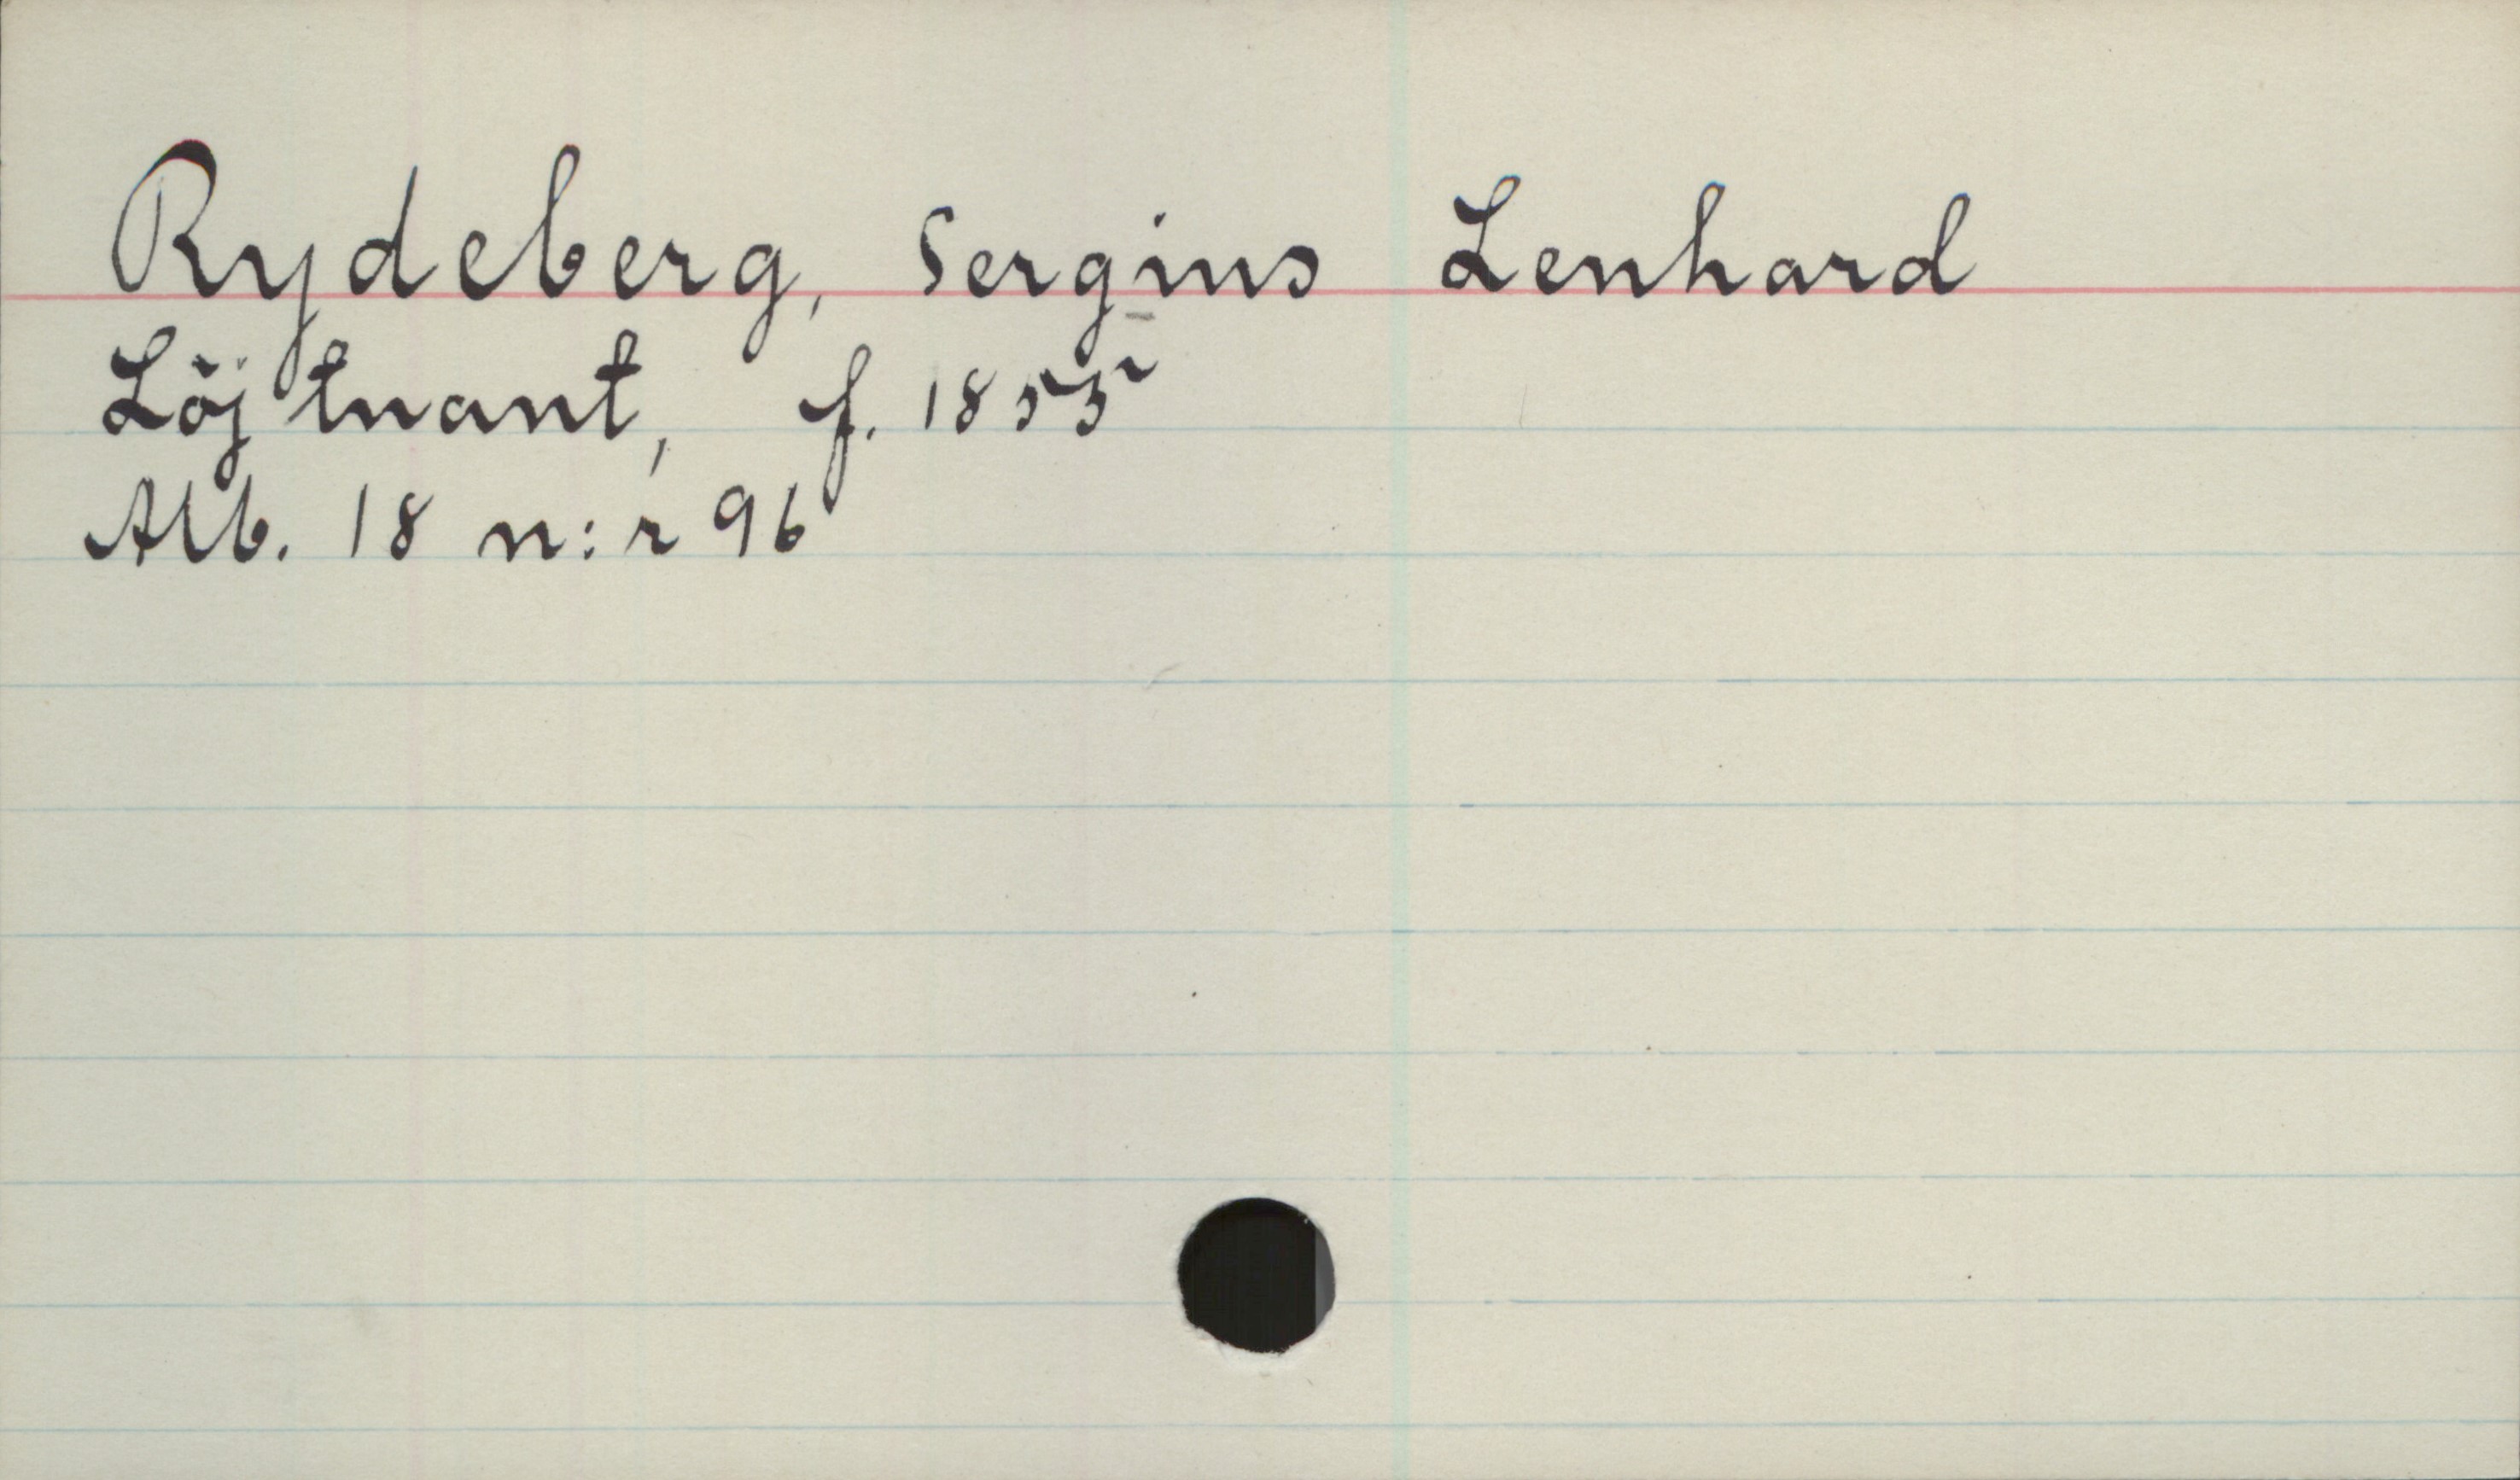 Rydeberg, Sergius Lenhard
Löjtnant, f. 1855
Alb. 18 n:r 96